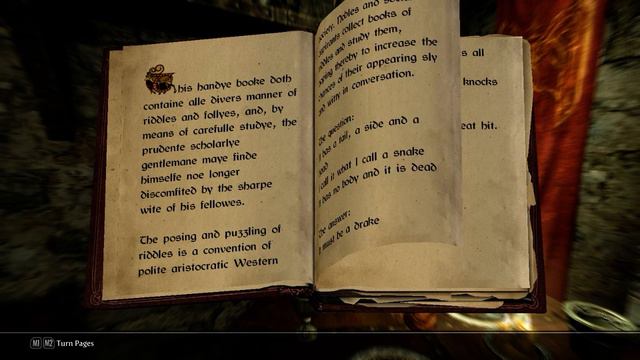 This handye booke doth
containe alle divers manner of
riddles and follyes, and, by
means of carefulle studye, the
prudente scholarlye
gentlemane maye finde
himselfe noe longer
discomfited by the sharpe
wite of his fellowes.
The posing and puzzling of
riddles is a convention of
polite aristocratic Western
society. Nobles and social
aspirants collect books of
riddles and study them,
hoping thereby to increase the
chances of their appearing sly
and witty in conversation.
The question:
It has a tail, a side and a
head
I call it what I call a snake
It has no body and it is dead
The answer:
It must be a drake
s all
knocks
eat hit.
M1 M2 Turn Pages